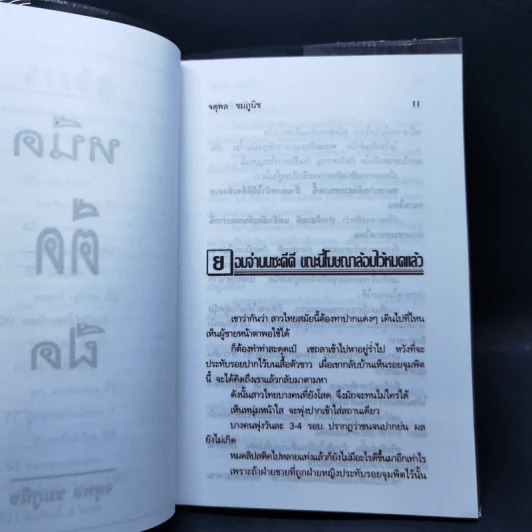 จตุพล ชมภูนิช
11
ยอมจำนนซะดีดี ขณะนี้โฆษณาล้อมไว้หมดแล้ว
เขาว่ากันว่า สาวไทยสมัยนี้ต้องทาปากแดงๆ เดินไปที่ไหน
เห็นผู้ชายหน้าตาพอใช้ได้
ก็ต้องทำท่าสะดุดเป๋ เซถลาเข้าไปหาอยู่ร่ำไป หวังที่จะ
ประทับรอยปากไว้บนเสื้อตัวขาว เผื่อเขากลับบ้านเห็นรอยจุมพิต
นี้ จะได้คิดถึงเราแล้วกลับมาตามหา
ดังนั้นสาวไทยบางคนที่ยังโสด จึงมักจะทนไม่ใคร่ได้
เห็นหนุ่มหน้าใส จะพุ่งปากเข้าใส่สถานเดียว
บางคนพุ่งวันละ 3-4 รอบ ปรากฏว่าชนจนปากย่น ผล
ยังไม่เกิด
หมดลิปสติคไปหลายแท่งแล้วก็ยังไม่มีอะไรดีขึ้นมาอีกเท่าไร
เพราะถ้าฝ่ายชายที่ถูกฝ่ายหญิงประทับรอยจุมพิตไว้นั้น